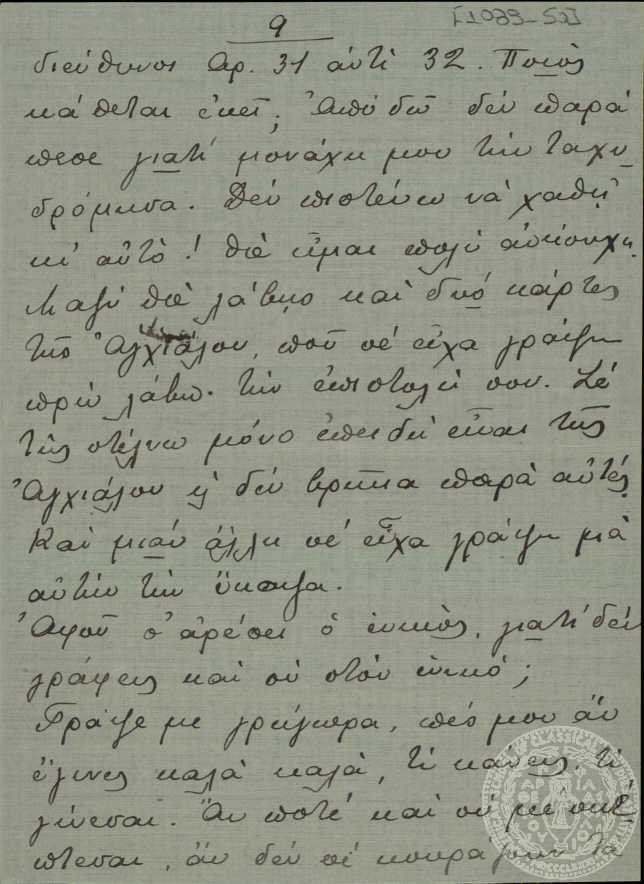 9
[1099-52]
διεύθυνσι Αρ. 31 ἀντί 32. Ποιός
κάθεται ἐκεῖ; Ἀπό δῶ δέν παρά
πεσε γιατί μονάχη μου τήν ταχυ
δρόμησα. Δέν πιστεύω νά χαθῇ
κι' αὐτό! Θά εἶμαι πολύ ἀνήσυχη.
Μαζύ θά λάβῃς καί δυό κάρτες
τῆς Ἀγχιάλου, πού σέ εἶχα γράψῃ
πρίν λάβω τήν ἐπιστολή σου. Σέ
τίς στέλνω μόνο ἐπειδή εἶναι τῆς
Ἀγχιάλου ἤ δέν βρῆκα παρά αὐτές.
Καί μιάν ἄλλη σέ εἶχα γράψῃ μά
αὐτήν τήν ἔκαψα.
Ἀφοῦ σ' ἀρέσει ὁ ἑνικός, γιατί δέν
γράφεις καί σύ στόν ἑνικό;
Γράψε με γρήγορα, πές μου ἄν
ἔγινες καλά καλά, τί κάνεις, τί
γίνεσαι. Ἄν ποτέ καί σύ με σκέ
πτεσαι, ἄν δέν σέ κουράζουν τά